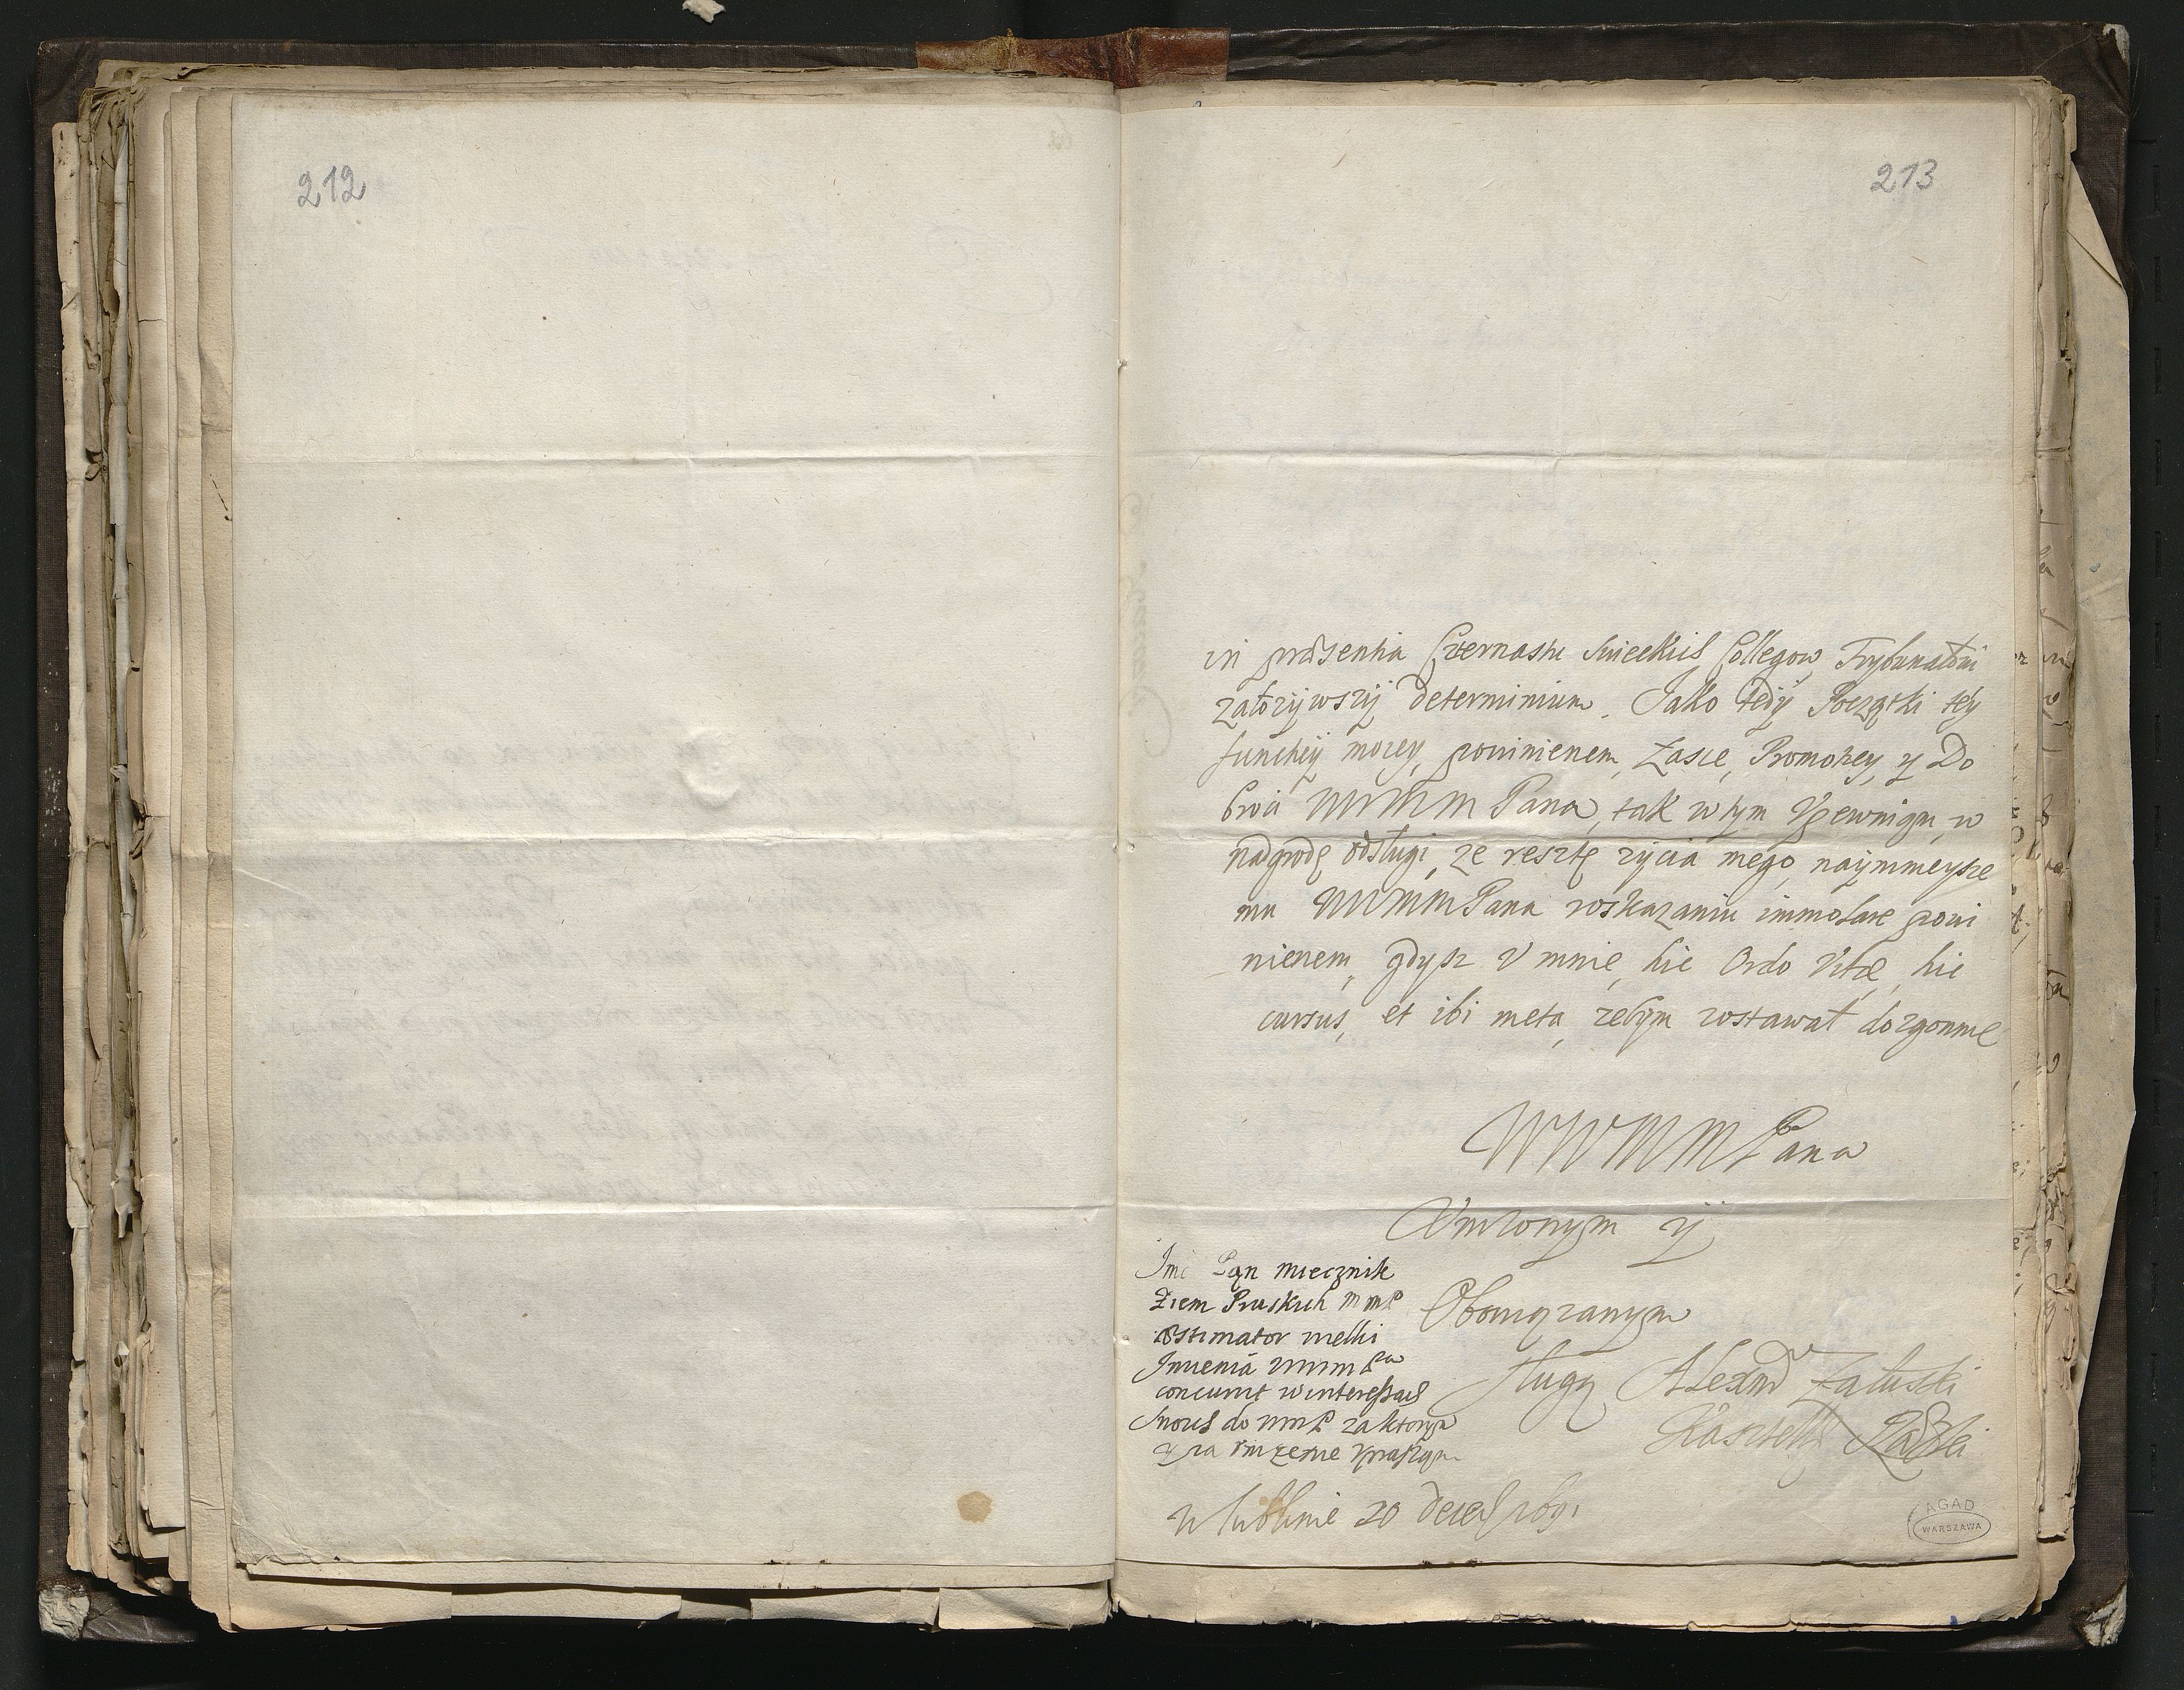 212
213
in præsentia Czternastu Swieckich Collegow Trybunalski
załozywszy determinium. Jako tedy Początki tey
funkcyi moiey, powinienem, Zascie, Promocyey, y Do
broci WWMM Pana, tak w tym Vpewniam, w
nadgrodę odsługi, ze resztę zycia mego, naymnieysze
mu WWMM Pana roskazaniu immolare powi
nienem, gdysz V mnie, hic Ordo Vitæ, hic
cursus, et ibi meta, zebym zostawał dozgonnie
WWMM Pana
Vnizonym y
Obowiązanym
sługą Alexandr Załuski
Kasztell
Imć Pan miecznik
Ziem Pruskich m m P
æstimator wielki
Imienia WMM Pa
concurrit w interessach
Swoich do WMM P za ktorym
y ia vnizenie vpraszam
w Lublinie 20 decem 1691
AGAD
WARSZAWA